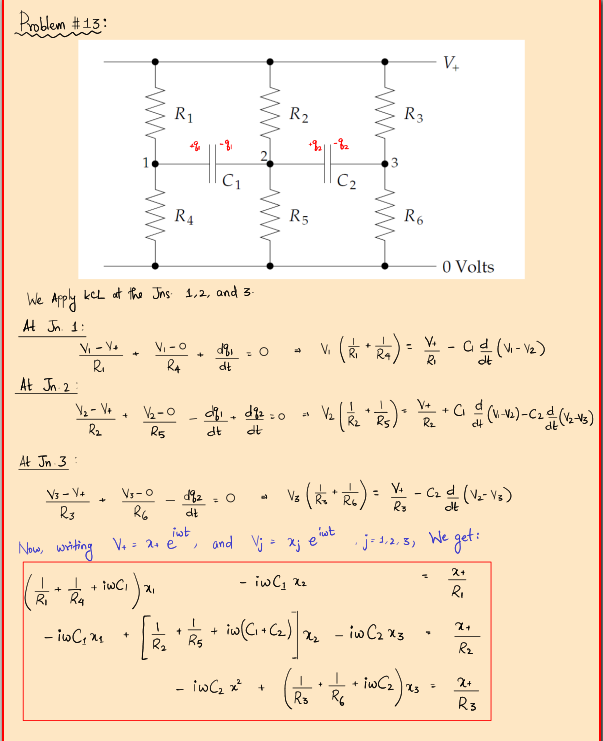 Problem #13:
V₊
R₁ R₂ R₃
+q₁ -q₁ +q₂ -q₂
1 2 3
C₁ C₂
R₄ R₅ R₆
0 Volts
We Apply KCL at the Jns. 1,2, and 3.
At Jn. 1:
(V₁ - V₊)/R₁ + (V₁ - 0)/R₄ + dq₁/dt = 0 ⇒ V₁ (1/R₁ + 1/R₄) = V₊/R₁ - C₁ d/dt (V₁ - V₂)
At Jn. 2:
(V₂ - V₊)/R₂ + (V₂ - 0)/R₅ - dq₁/dt + dq₂/dt = 0 ⇒ V₂ (1/R₂ + 1/R₅) = V₊/R₂ + C₁ d/dt (V₁ - V₂) - C₂ d/dt (V₂ - V₃)
At Jn 3:
(V₃ - V₊)/R₃ + (V₃ - 0)/R₆ - dq₂/dt = 0 ⇒ V₃ (1/R₃ + 1/R₆) = V₊/R₃ - C₂ d/dt (V₂ - V₃)
Now, writing V₊ = x₊ e^{iωt}, and Vj = xj e^{iωt}, j = 1, 2, 3, We get:
(1/R₁ + 1/R₄ + iωC₁) x₁ - iωC₁ x₂ = x₊/R₁
- iωC₁ x₁ + [1/R₂ + 1/R₅ + iω(C₁ + C₂)] x₂ - iωC₂ x₃ = x₊/R₂
- iωC₂ x² + (1/R₃ + 1/R₆ + iωC₂) x₃ = x₊/R₃